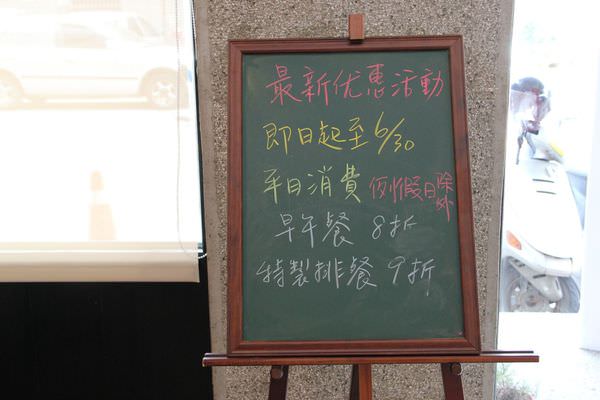 最新优惠活動
即日起至6/30
平日消費 例假日除外
早午餐 8折
特製排餐 9折